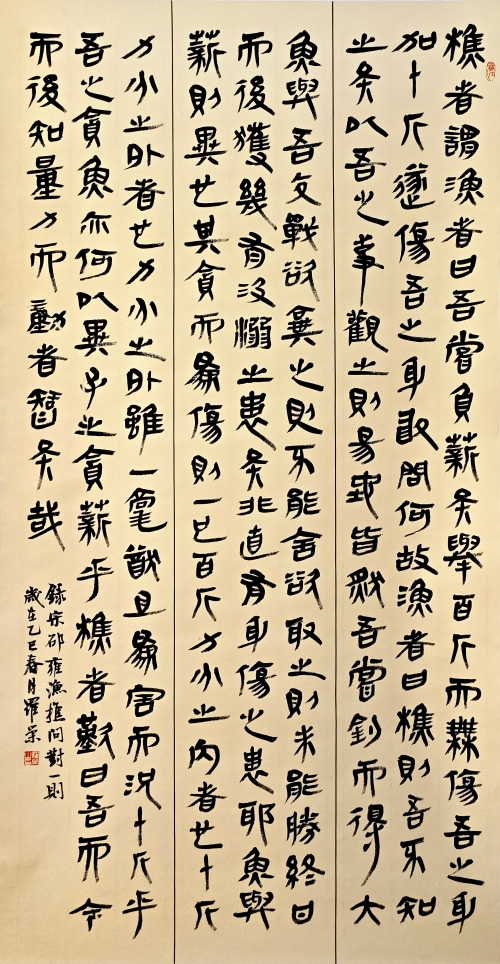 樵者謂漁者曰吾嘗負薪矣舉百斤而無傷吾之身
加十斤遂傷吾之身敢問何故漁者曰樵則吾不知
之矣以吾之事觀之則易地皆然吾嘗釣而得大
魚與吾交戰欲棄之則不能舍欲取之則未能勝終日
而後獲幾有沒溺之患矣非直有身傷之患耶魚與
薪則異也其貪而為傷則一也百斤力分之內者也十斤
力分之外者也力分之外雖一毫猶且為害而況十斤乎
吾之貪魚亦何以異子之貪薪乎樵者歎曰吾而今
而後知量力而動者智矣哉
錄宋邵雍漁樵問對一則
歲在乙巳春月羅榮